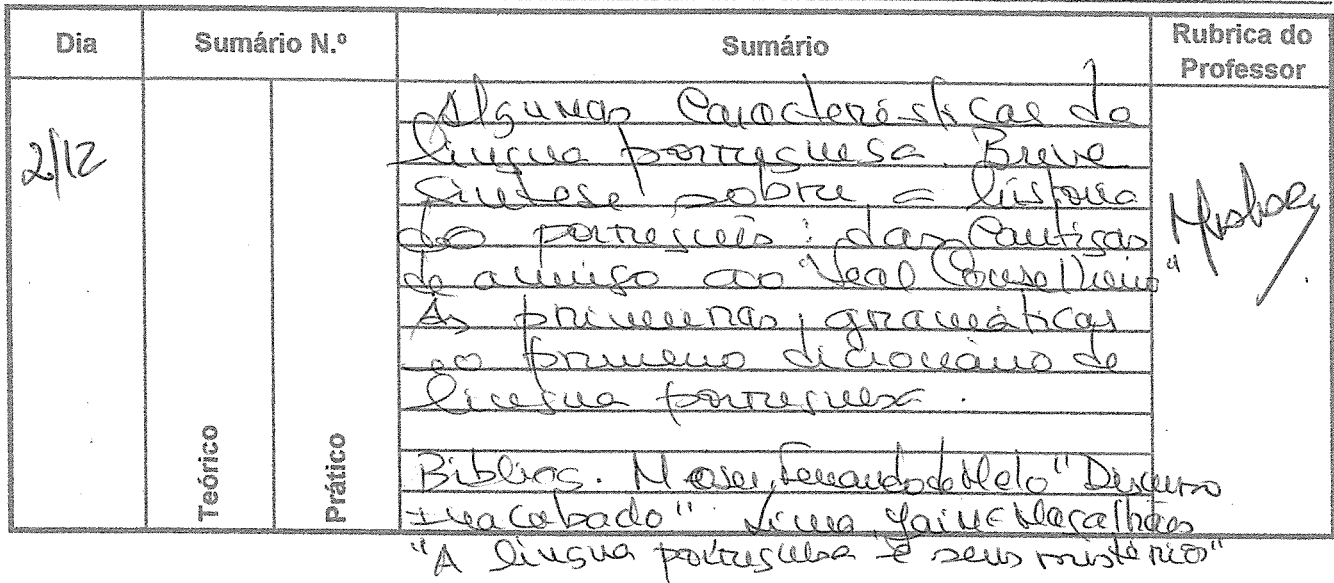 Dia Sumário N.º Sumário Rubrica do Professor
2/12
Algumas Características da
língua portuguesa. Breve
síntese sobre a história
do português: das Cantigas
de amigo ao "Leal Conselheiro"
As primeiras gramáticas
e o primeiro dicionário de
língua portuguesa.
Teórico Prático
Bibliog. Moser, Fernando de Melo "Discurso
Inacabado" Lima, Jaime Magalhães
"A língua portuguesa e seus mistérios"